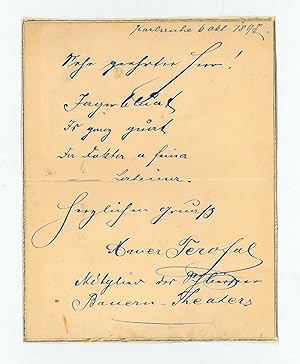 Karlsruhe 6 Okt 1898.
Sehr geehrter Herr!
Jagerbluat
Is ganz guat
Der Dokter a feina
Lateina.
Herzlichen Gruß
Xaver Terofal
Mitglied des Schlierseer
Bauern-Theaters